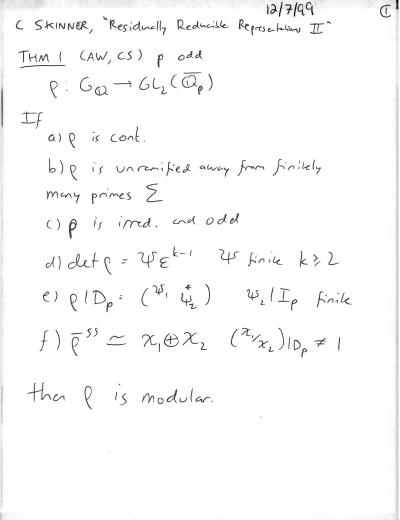 12/7/99
①
C SKINNER, "Residually Reducible Representations II"
THM 1 (AW, CS) p odd
ρ: G_ℚ → GL₂(ℚ̄_p)
If
a) ρ is cont.
b) ρ is unramified away from finitely
many primes Σ
c) ρ is irred. and odd
d) det ρ = ψε^{k-1} ψ finite k ≥ 2
e) ρ|D_p = (ψ₁ * ψ₂) ψ₂|I_p finite
f) ρ̄^{ss} ≃ χ₁⊕χ₂ (χ₁/χ₂)|D_p ≠ 1
then ρ is modular.